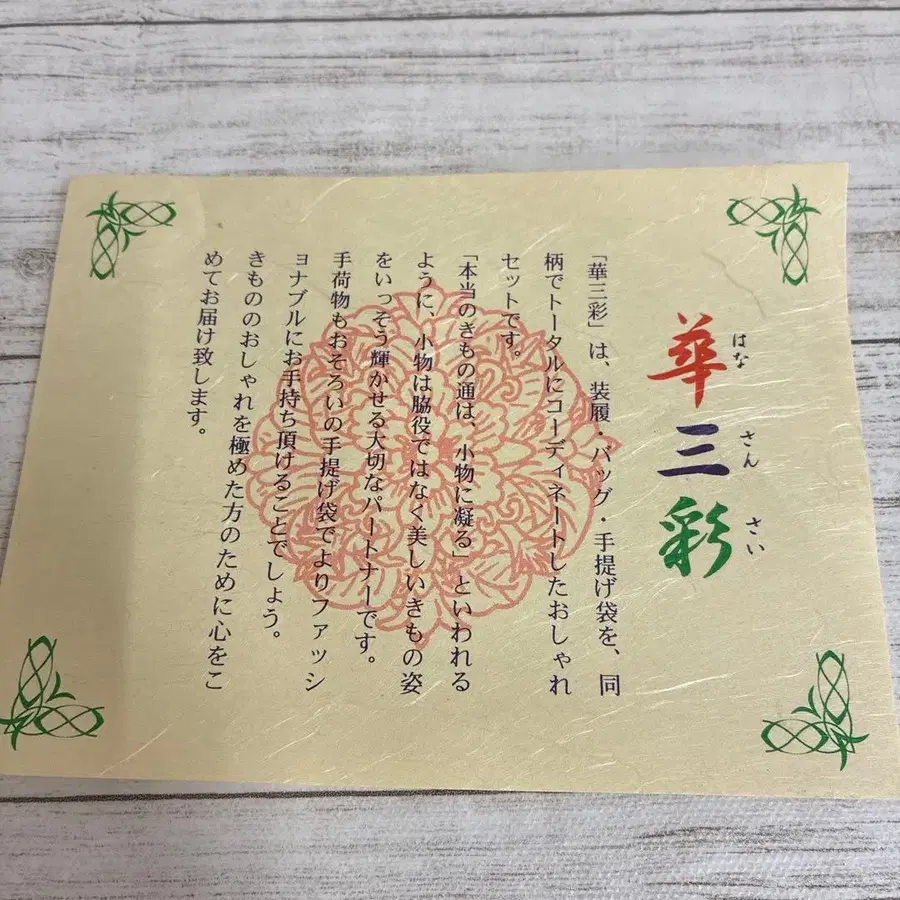 華三彩
はな さん さい
「華三彩」は、装履・バッグ・手提げ袋を、同
柄でトータルにコーディネートしたおしゃれ
セットです。
「本当のきもの通は、小物に凝る」といわれる
ように、小物は脇役ではなく美しいきもの姿
をいっそう輝かせる大切なパートナーです。
手荷物もおそろいの手提げ袋でよりファッシ
ョナブルにお手持ち頂けることでしょう。
きもののおしゃれを極めた方のために心をこ
めてお届け致します。